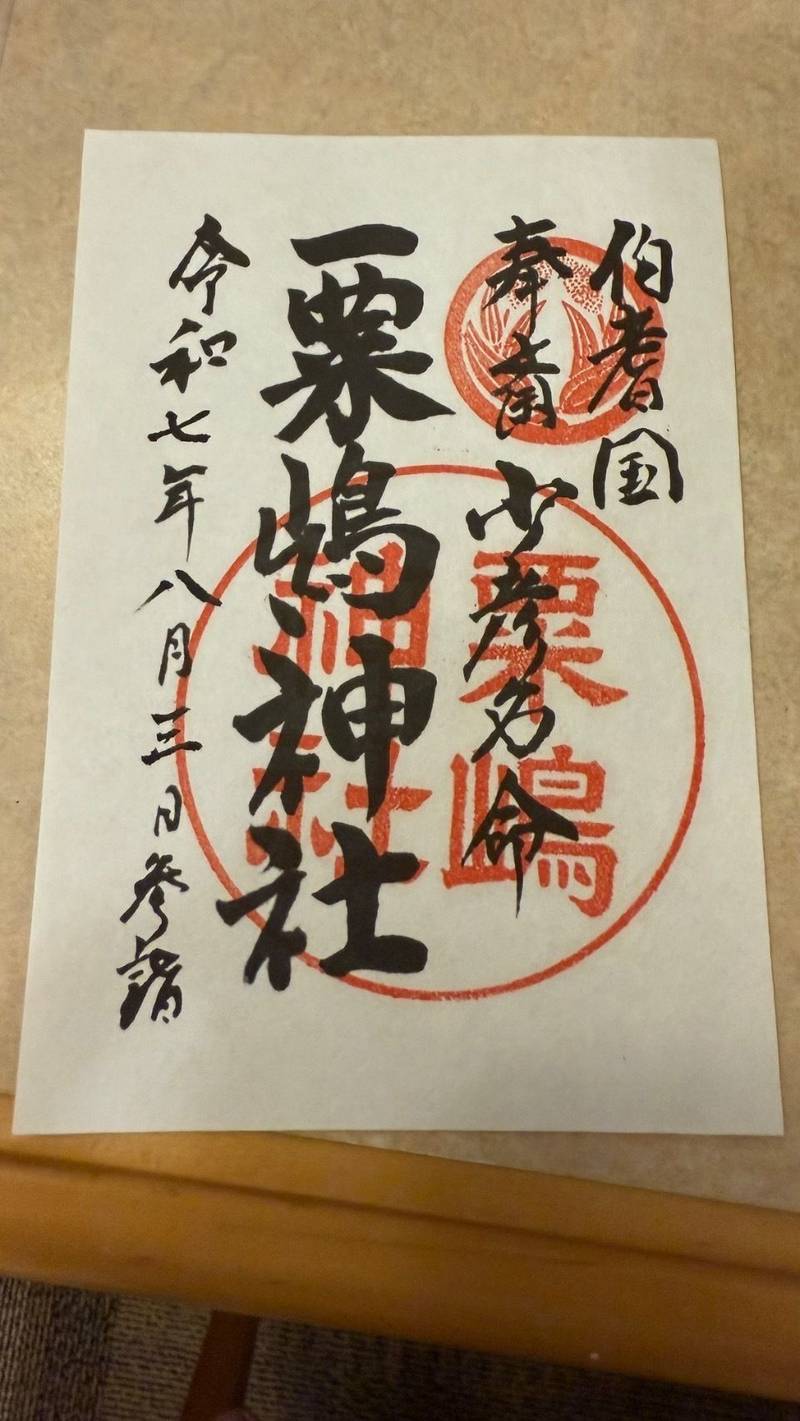 伯耆国
奉斎 少彦名命
粟嶋神社
令和七年八月三日参詣
粟嶋
神社